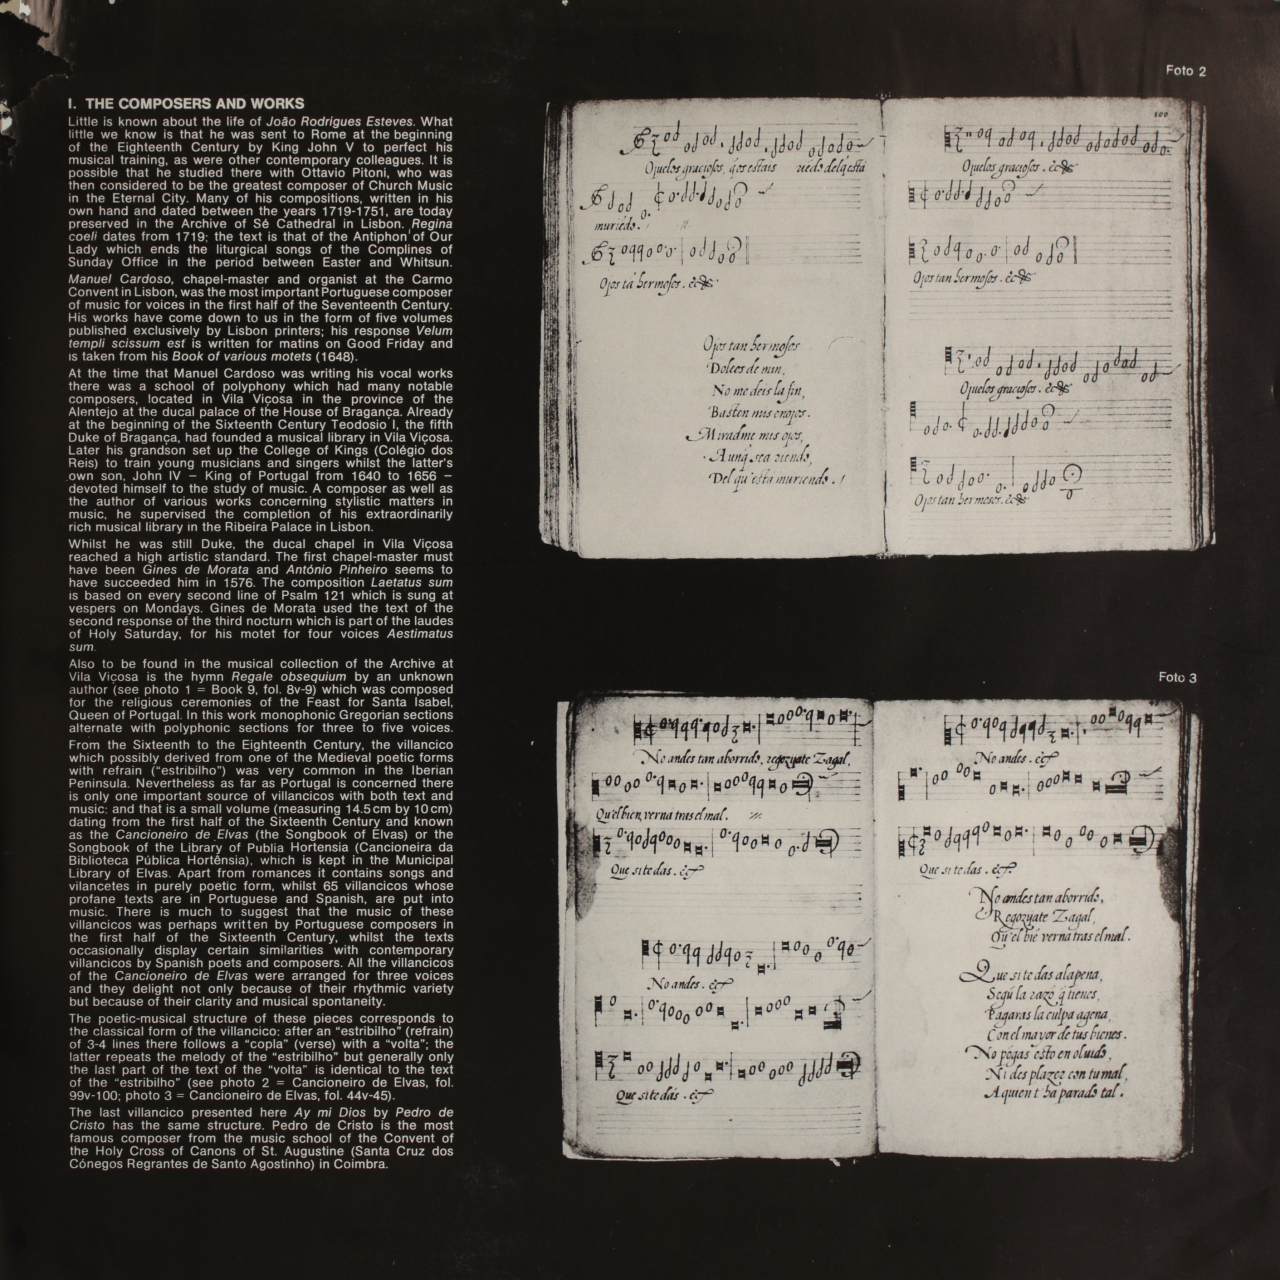 I. THE COMPOSERS AND WORKS
Little is known about the life of João Rodrigues Esteves. What
little we know is that he was sent to Rome at the beginning
of the Eighteenth Century by King John V to perfect his
musical training, as were other contemporary colleagues. It is
possible that he studied there with Ottavio Pitoni, who was
then considered to be the greatest composer of Church Music
in the Eternal City. Many of his compositions, written in his
own hand and dated between the years 1719-1751, are today
preserved in the Archive of Sé Cathedral in Lisbon. Regina
coeli dates from 1719; the text is that of the Antiphon of Our
Lady which ends the liturgical songs of the Complines of
Sunday Office in the period between Easter and Whitsun.
Manuel Cardoso, chapel-master and organist at the Carmo
Convent in Lisbon, was the most important Portuguese composer
of music for voices in the first half of the Seventeenth Century.
His works have come down to us in the form of five volumes
published exclusively by Lisbon printers; his response Velum
templi scissum est is written for matins on Good Friday and
is taken from his Book of various motets (1648).
At the time that Manuel Cardoso was writing his vocal works
there was a school of polyphony which had many notable
composers, located in Vila Viçosa in the province of the
Alentejo at the ducal palace of the House of Bragança. Already
at the beginning of the Sixteenth Century Teodosio I, the fifth
Duke of Bragança, had founded a musical library in Vila Viçosa.
Later his grandson set up the College of Kings (Colégio dos
Reis) to train young musicians and singers whilst the latter's
own son, John IV – King of Portugal from 1640 to 1656 –
devoted himself to the study of music. A composer as well as
the author of various works concerning stylistic matters in
music, he supervised the completion of his extraordinarily
rich musical library in the Ribeira Palace in Lisbon.
Whilst he was still Duke, the ducal chapel in Vila Viçosa
reached a high artistic standard. The first chapel-master must
have been Gines de Morata and António Pinheiro seems to
have succeeded him in 1576. The composition Laetatus sum
is based on every second line of Psalm 121 which is sung at
vespers on Mondays. Gines de Morata used the text of the
second response of the third nocturn which is part of the laudes
of Holy Saturday, for his motet for four voices Aestimatus
sum.
Also to be found in the musical collection of the Archive at
Vila Viçosa is the hymn Regale obsequium by an unknown
author (see photo 1 = Book 9, fol. 8v-9) which was composed
for the religious ceremonies of the Feast for Santa Isabel,
Queen of Portugal. In this work monophonic Gregorian sections
alternate with polyphonic sections for three to five voices.
From the Sixteenth to the Eighteenth Century, the villancico
which possibly derived from one of the Medieval poetic forms
with refrain (“estribilho”) was very common in the Iberian
Peninsula. Nevertheless as far as Portugal is concerned there
is only one important source of villancicos with both text and
music: and that is a small volume (measuring 14.5 cm by 10 cm)
dating from the first half of the Sixteenth Century and known
as the Cancioneiro de Elvas (the Songbook of Elvas) or the
Songbook of the Library of Publia Hortensia (Cancioneira da
Biblioteca Pública Hortênsia), which is kept in the Municipal
Library of Elvas. Apart from romances it contains songs and
vilancetes in purely poetic form, whilst 65 villancicos whose
profane texts are in Portuguese and Spanish, are put into
music. There is much to suggest that the music of these
villancicos was perhaps written by Portuguese composers in
the first half of the Sixteenth Century, whilst the texts
occasionally display certain similarities with contemporary
villancicos by Spanish poets and composers. All the villancicos
of the Cancioneiro de Elvas were arranged for three voices
and they delight not only because of their rhythmic variety
but because of their clarity and musical spontaneity.
The poetic-musical structure of these pieces corresponds to
the classical form of the villancico: after an “estribilho” (refrain)
of 3-4 lines there follows a “copla” (verse) with a “volta”; the
latter repeats the melody of the “estribilho” but generally only
the last part of the text of the “volta” is identical to the text
of the “estribilho” (see photo 2 = Cancioneiro de Elvas, fol.
99v-100; photo 3 = Cancioneiro de Elvas, fol. 44v-45).
The last villancico presented here Ay mi Dios by Pedro de
Cristo has the same structure. Pedro de Cristo is the most
famous composer from the music school of the Convent of
the Holy Cross of Canons of St. Augustine (Santa Cruz dos
Cónegos Regrantes de Santo Agostinho) in Coimbra.
Foto 2
100
Ojuelos graciosos, q̃ os estais
muriẽdo.
Ojos tã hermosos.
Ojos tan hermosos
Doleos de min,
No me deis la fin,
Basten mis enojos.
Miradme mis ojos,
Aunq̃ sea riendo,
Del qu'està muriendo.
Ojuelos graciosos.
Ojos tan hermosos.
Ojuelos graciosos.
Ojos tan hermosos.
Foto 3
No andes tan aborrido, regozyate Zagal,
Qu'el bien verna tras el mal.
Que si te das.
No andes.
Que si te dás.
No andes.
Que si te das.
No andes tan aborrido,
Regozyate Zagal,
Qu'el biẽ verna tras el mal.
Que si te das a la pena,
Segũ la razõ q̃ tienes,
Pagaras la culpa agena,
Con el mayor de tus bienes.
No pōgas esto en oluido,
Ni des plazer con tu mal,
A quien t'ha parado tal.